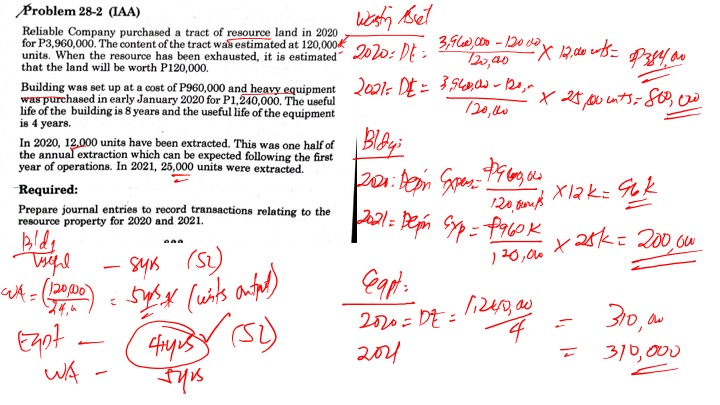 Problem 28-2 (IAA)
Reliable Company purchased a tract of resource land in 2020
for P3,960,000. The content of the tract was estimated at 120,000
units. When the resource has been exhausted, it is estimated
that the land will be worth P120,000.
Building was set up at a cost of P960,000 and heavy equipment
was purchased in early January 2020 for P1,240,000. The useful
life of the building is 8 years and the useful life of the equipment
is 4 years.
In 2020, 12,000 units have been extracted. This was one half of
the annual extraction which can be expected following the first
year of operations. In 2021, 25,000 units were extracted.
Required:
Prepare journal entries to record transactions relating to the
resource property for 2020 and 2021.
Bldg
Useful — 8yrs (SL)
WA = (120,000 / 24,000) = 5yrs (units output)
Eqpt — 4yrs ✓ (SL)
WA — 5yrs
2020: DE: 3,960,000 - 120,000 / 120,000 × 12,000 units = P384,000
2021: DE = / 120,000 × 25,000 units = 800,000
Bldg:
2020: Depn Expense = P960,000 / 120,000 × 12k = 96k
2021 = Depn Exp = P960K / 120,000 × 25k = 200,000
Eqpt:
2020 = DE = 1,240,000 / 4 = 310,000
2021 = 310,000